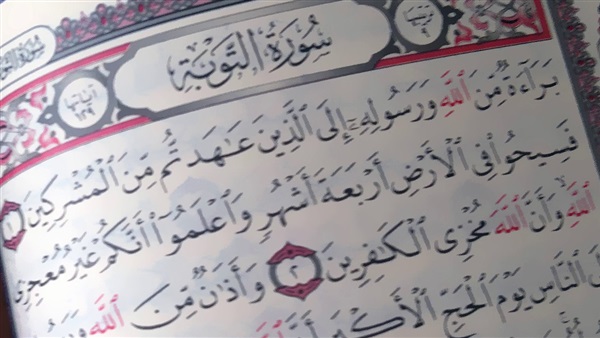 سُورَةُ التَّوْبَةِ
آيَاتُهَا ١٢٩
بَرَآءَةٌ مِّنَ ٱللَّهِ وَرَسُولِهِۦٓ إِلَى ٱلَّذِينَ عَٰهَدتُّم مِّنَ ٱلْمُشْرِكِينَ ١
فَسِيحُوا۟ فِى ٱلْأَرْضِ أَرْبَعَةَ أَشْهُرٍ وَٱعْلَمُوٓا۟ أَنَّكُمْ غَيْرُ مُعْجِزِى
ٱللَّهِ وَأَنَّ ٱللَّهَ مُخْزِى ٱلْكَٰفِرِينَ ٢ وَأَذَٰنٌ مِّنَ ٱللَّهِ
ٱلنَّاسِ يَوْمَ ٱلْحَجِّ ٱلْأَكْبَرِ أَنَّ